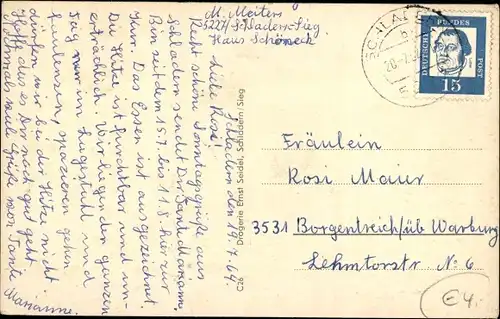 M. Meiters
5227 Schladern-Sieg
Haus Schöneck
Schladern den 19.7.64
Liebe Rosi!
Recht schöne Sonntagsgrüße aus
Schladern sendet Dir Tante Mariann.
Bin seit dem 15.7. bis 11.8 hier zur
Kur. Das Essen ist ausgezeichnet.
Die Hitze ist furchtbar und un-
erträglich. Wir liegen den ganzen
Tag nur im Liegestuhl und
faulenzen, spazieren gehen
dürfen wir bei der Hitze nicht
Hoffe das es Dir noch gut geht.
Nochmals viele Grüße von Tante
Marianne.
C26 Drogerie Ernst Seidel, Schladern/Sieg
SCHLADERN
20.-7.
DEUTSCHE BUNDESPOST
15
Fräulein
Rosi Maier
3531 Borgentreich/üb Warburg
Lehmtorstr. N° 6
€4,-